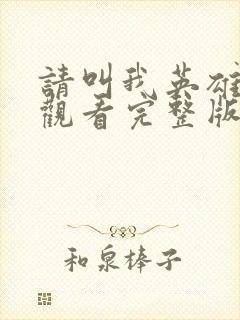 請叫我英雄
觀看完整版
和泉棒子